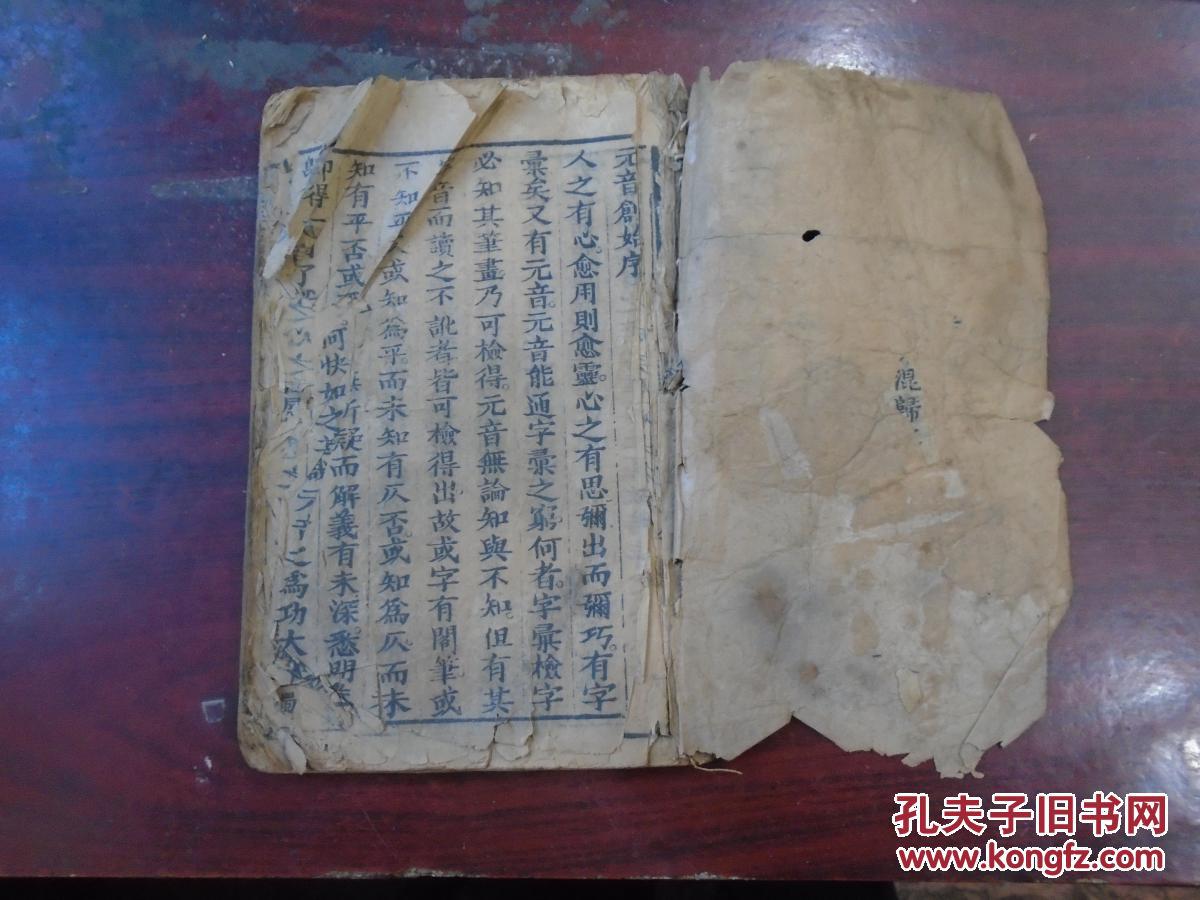 混歸
元音創始序
人之有心愈用則愈靈心之有思彌出而彌巧有字
彙矣又有元音元音能通字彙之窮何者字彙檢字
必知其筆畫乃可檢得元音無論知與不知但有其
音而讀之不訛者皆可檢得出故或字有閣筆或
不知平 或知爲平而未知有仄否或知爲仄而未
知有平否或 所疑而解義有未深悉明
即得 了 何快如之
之爲功大
孔夫子旧书网
www.kongfz.com